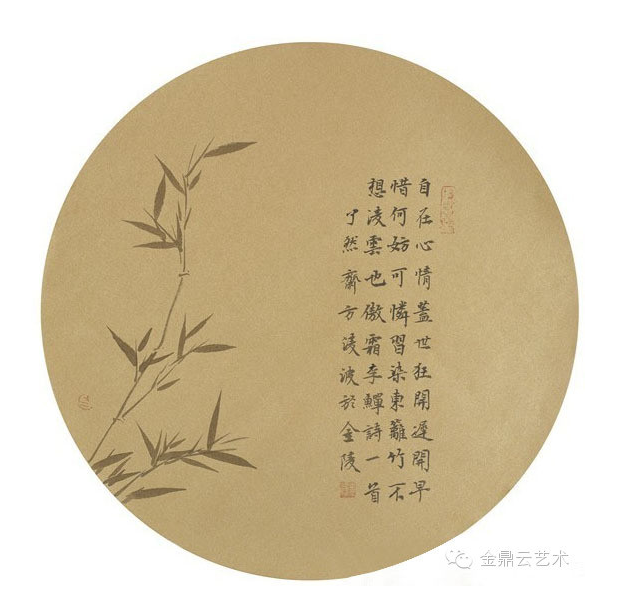 自在心情蓋世狂開遲開早
惜何妨可憐習染東籬竹不
想淩雲也傲霜李鱓詩一首
了然齋方淩波於金陵
金鼎云艺术